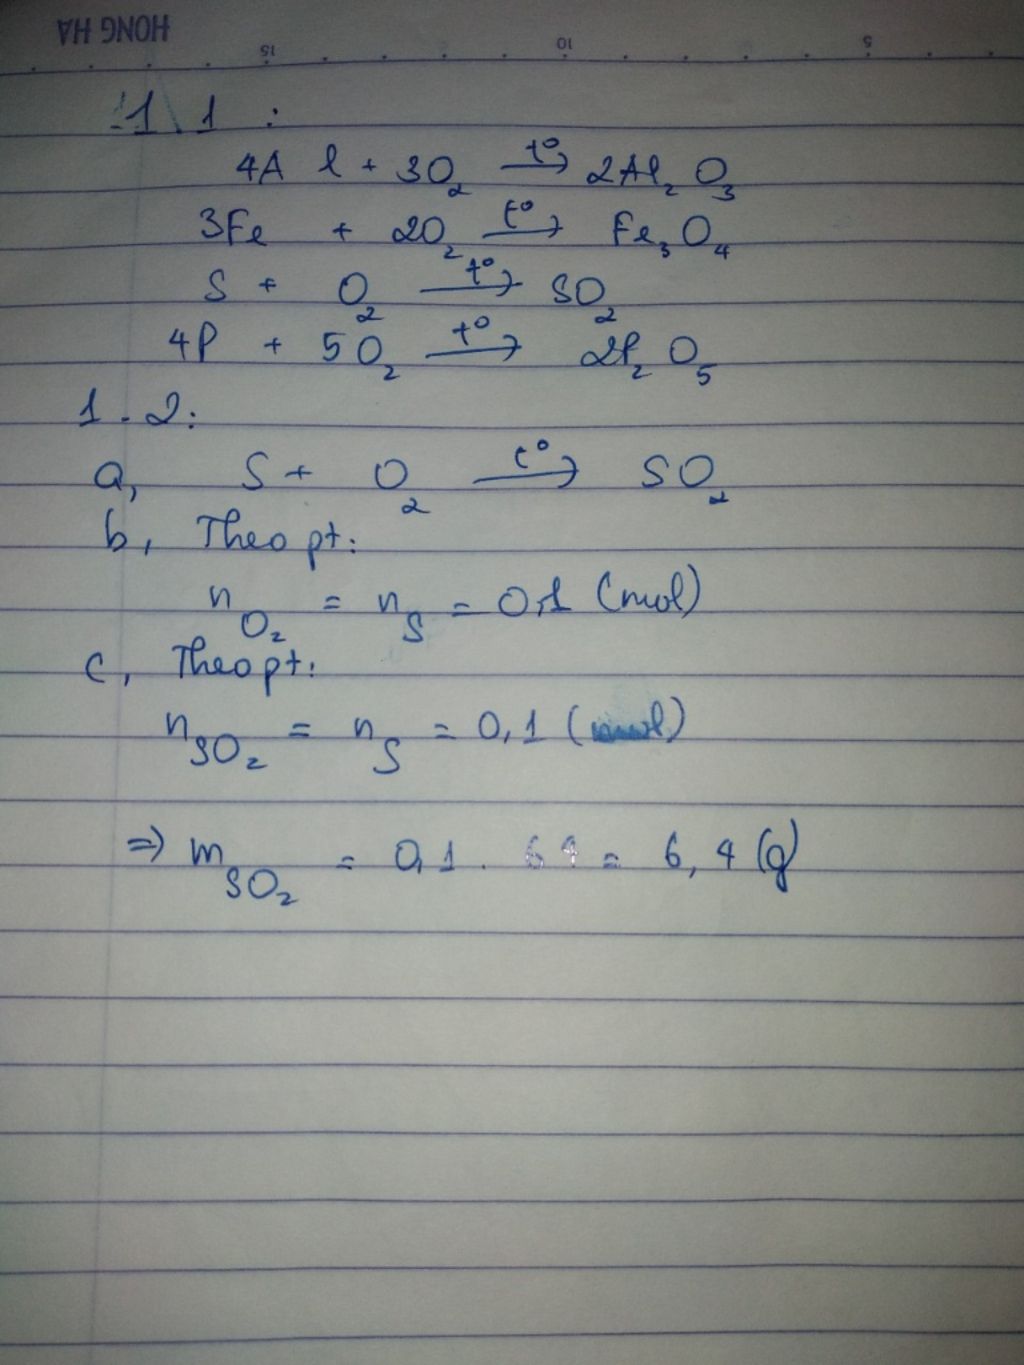 HONG HA
15 10 5
1\1 :
4Al + 3O₂ t°→ 2Al₂O₃
3Fe + 2O₂ t°→ Fe₃O₄
S + O₂ t°→ SO₂
4P + 5O₂ t°→ 2P₂O₅
1.2:
a, S + O₂ t°→ SO₂
b, Theo pt:
n O₂ = n S = 0,1 (mol)
c, Theo pt:
n SO₂ = n S = 0,1 (mol)
=> m SO₂ = 0,1 . 64 = 6,4 (g)